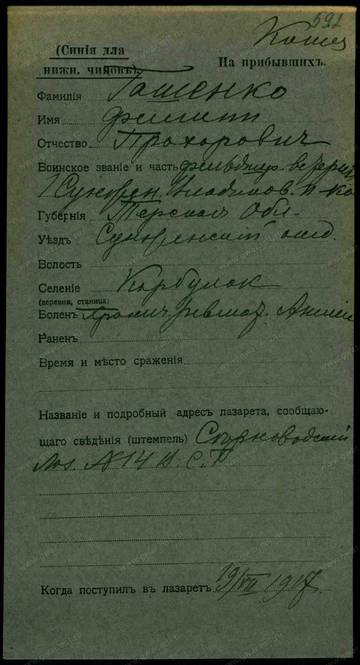 592
Казач
(Синія для
нижн. чиновъ)
На прибывшихъ.
Фамилія Гашенко
Имя Филипп
Отчество Прохорович
Воинское званіе и часть фельдшер ветерин
1 Сунжен. Владиков. п-ка
Губернія Терская Обл.
Уѣздъ Сунженскій отд.
Волость
Селеніе Карбулак
(деревня, станица)
Боленъ Хронич. ревмат.
Раненъ
Время и мѣсто сраженія
Названіе и подробный адресъ лазарета, сообщаю-
щаго свѣдѣнія (штемпель) Серноводский
Лаз. №14 В. С. Г.
Когда поступилъ въ лазаретъ 19/VII 1917